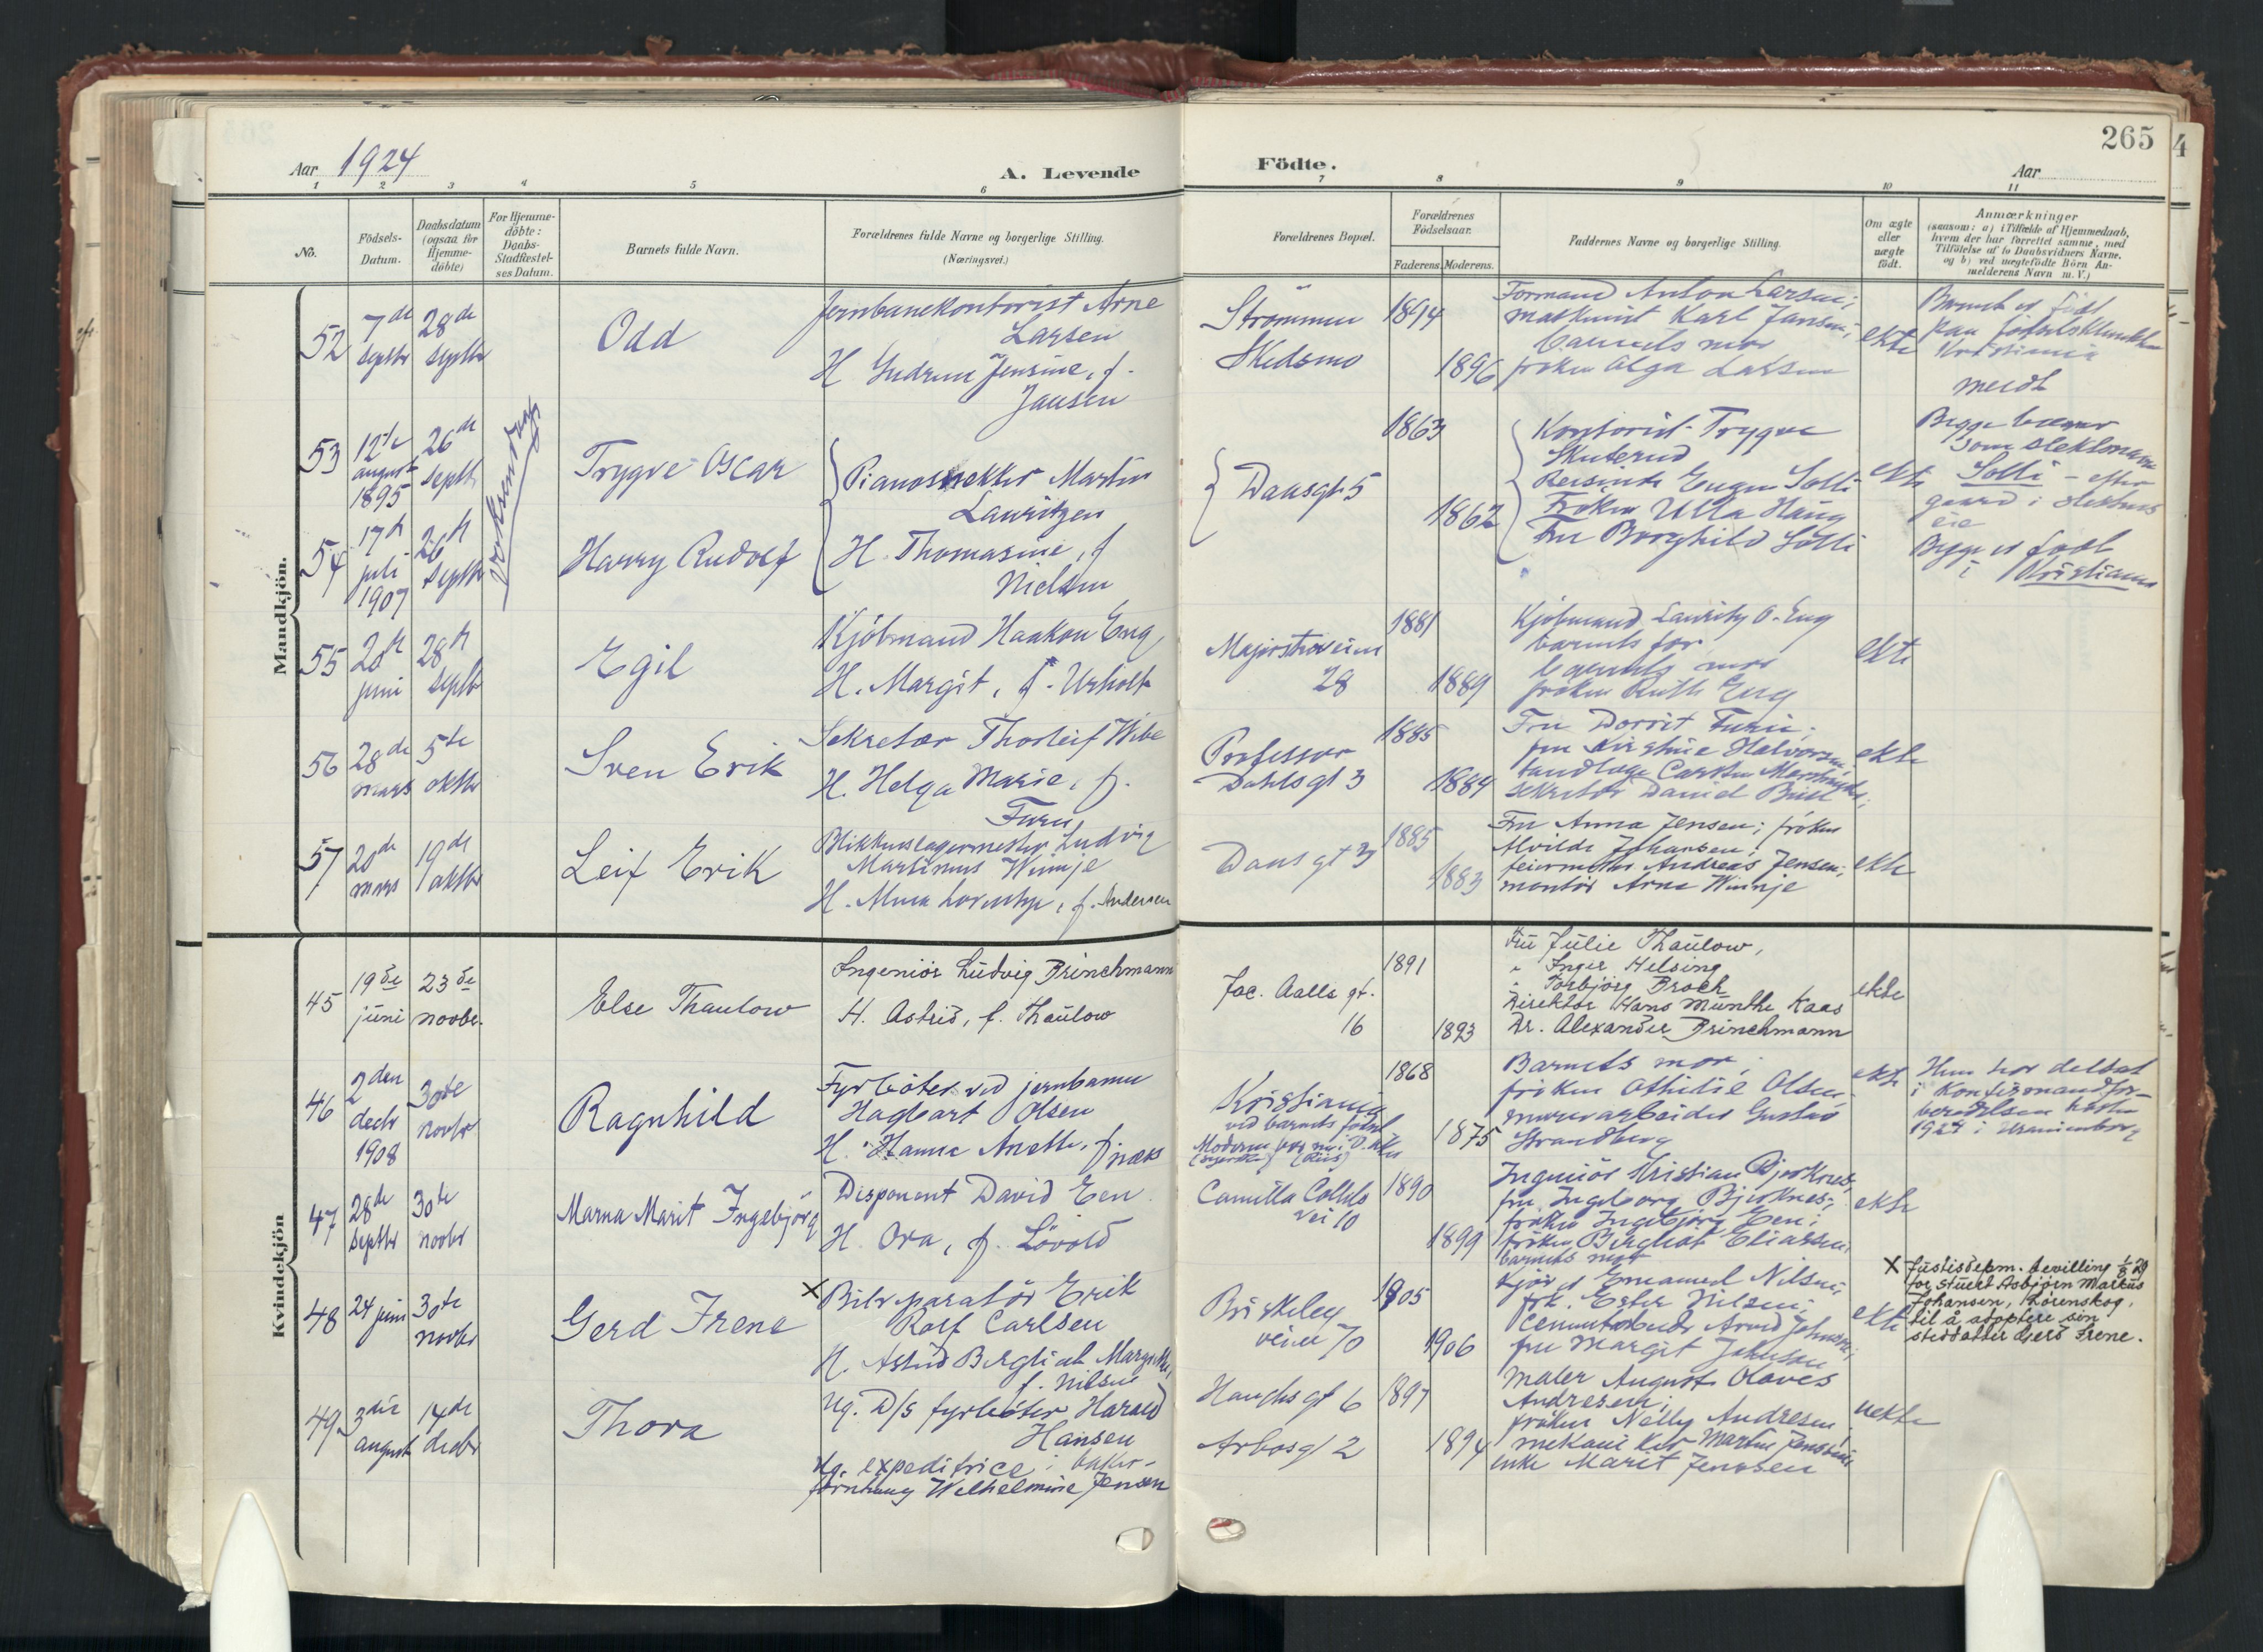 Aar 1924
A. Levende
Födte.
265
Aar
1 2 3 4 5 6 7 8 9 10 11
No.
Födsels-
Datum.
Daabsdatum
(ogsaa for
Hjemme-
döbte)
For Hjemme-
döbte:
Daabs-
Stadfæstel-
ses Datum.
Barnets fulde Navn.
Forældrenes fulde Navne og borgerlige Stilling.
(Næringsvei.)
Forældrenes Bopæl.
Forældrenes
Födselsaar.
Faderens. Moderens.
Faddernes Navne og borgerlige Stilling.
Om ægte
eller
uægte
födt.
Anmærkninger
(saasom: a) i Tilfælde af Hjemmedaab,
hvem der har forrettet samme, med
Tilföielse af to Daabsvidners Navne.
og b) ved uægtefödte Börn An-
melderens Navn m. V.)
Mandkjön.
52
7de
septbr
28de
septbr
Odd
Jernbanekontorist Arne
Larsen
H Gudrun Jensine, f.
Jansen
Strømmen
Skedsmo
1894
1896
Formand Anton Larsen;
maskinist Karl Jansen;
barnets mor
frøken Olga Larsen
ekte
Barnet er født
paa fødselsklinikken
Kristiania
meldt
53
12te
august
1895
26de
septbr
voksendaap
Trygve Oscar
Pianosnekker Martin
Lauritzen
Daasgt 5
1863
Kontorist Trygve
Skuterud
Reisende Eugen Solli
ekte
Begge bærer
som slektsnavn
Solli – efter
gaard i slektens
eie
54
17de
juli
1907
26de
septbr
Harry Rudolf
H. Thomasine, f
Nielsen
1862
Frøken Ulla Haug
Fru Borghild Solli
Begge er født
i Kristiania
55
20de
juni
28de
septbr
Egil
Kjøbmand Haakon Eng,
H. Margit, f. Urholt
Majorstuveien
28
1881
1889
Kjøbmand Lauritz O. Eng
barnets far
barnets mor
frøken Ruth Eng
ekte
56
28de
mars
5te
oktbr
Sven Erik
Sekretær Thorleif Wibe
H. Helga Marie, f.
Furu
Professor
Dahlsgt 3
1885
1884
Fru Dorrit Furu;
fru Kirstine Halvorsen
tandlæge Carsten
sekretær Daniel
ekte
57
20de
mars
19de
oktbr
Leif Erik
Blikkenslagermester Ludvig
Martinius Winnje
H. Anna Lovise, f. Andersen
Daas gt 3
1885
1883
Fru Anna Jensen; frøken
Alvilde Johansen;
feiermester Andreas Jensen;
montør Arne Winnje
ekte
Kvindekjön
45
19de
juni
23de
novbr.
Else Thaulow
Ingeniør Ludvig Brinchmann
H. Astrid, f. Thaulow
Jac. Aalls gt.
16
1891
1893
Fru Julie Thaulow,
" Inger Helsing
" Torbjørg Broch
Direktør Hans Munthe Kaas
Dr. Alexander Brinchmann
ekte
46
2den
decbr
1908
30te
novbr
Ragnhild
Fyrbøter ved jernbanen
Hagbart Olsen
H. Hanna Anette, f. næss
Kristiania
ved barnets fødsel
1868
1875
Barnets mor;
frøken Othilie Olsen
murerarbeider Gustav
Strandberg
ekte
Hun har deltat
i konfirmandfor-
beredelsen høsten
1924 i Uranienborg
47
28de
septbr
30te
novbr
Marna Marit Ingebjørg
Disponent David Een
H. Ova, f. Løvold
Camilla Colletts
vei 10
1890
1899
Ingeniør Kristian Bjerknes;
fru Ingeborg Bjerknes;
frøken Ingebjørg Een;
frøken Bergliot Eliassen;
barnets mor
ekte
48
24 juni
30te
novbr
Gerd Irene
X Bilreparatør Erik
Rolf Carlsen
H. Astrid Bergliot Margrethe,
f. Nilsen
Briskeby
veien 70
1905
1906
Kjører Emanuel Nilsen;
frk. Ester Nilsen;
cementarbeider Arvid Johnsen;
fru Margit Johnsen
ekte
X Justisdepm. bevilling
for stuert Asbjørn Markus
Johansen, Lørenskog,
til å adoptere sin
steddatter Gerd Irene.
49
3die
august
14de
decbr
Thora
Ug. D/S fyrbøter Harald
Hansen
Ug. expeditrice i baker-
forretning Wilhelmine Jensen
Hauchs gt 6
Arbosgt 2
1897
1894
Maler August Olaves
Andresen;
frøken Nelly Andresen;
mekaniker Martin Jenssen
enke Marit Jenssen
uekte